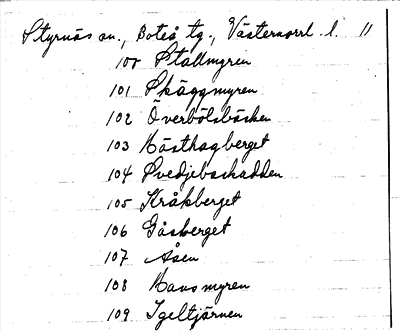 Styrnäs sn., Boteå tg., Västernorrl. l. 11
100 Stallmyren
101 Skäggmyren
102 Överbölsbäcken
103 Hästhagberget
104 Svedjebackadden
105 Kråkberget
106 Gåsberget
107 Åsen
108 Hansmyren
109 Igeltjärnen